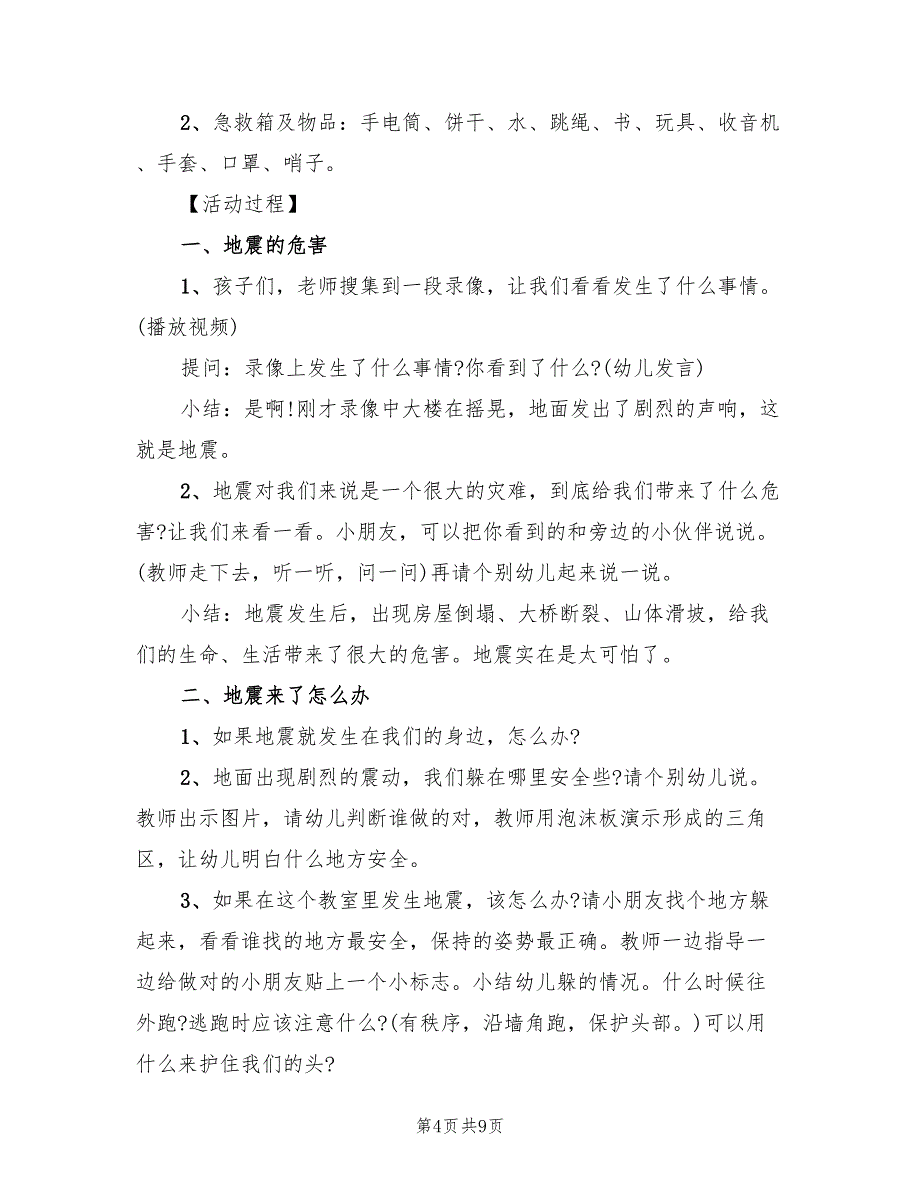 2、急救箱及物品：手电筒、饼干、水、跳绳、书、玩具、收音机
、手套、口罩、哨子。
【活动过程】
一、地震的危害
1、孩子们，老师搜集到一段录像，让我们看看发生了什么事情。
(播放视频)
提问：录像上发生了什么事情?你看到了什么?(幼儿发言)
小结：是啊!刚才录像中大楼在摇晃，地面发出了剧烈的声响，这
就是地震。
2、地震对我们来说是一个很大的灾难，到底给我们带来了什么危
害?让我们来看一看。小朋友，可以把你看到的和旁边的小伙伴说说。
(教师走下去，听一听，问一问)再请个别幼儿起来说一说。
小结：地震发生后，出现房屋倒塌、大桥断裂、山体滑坡，给我
们的生命、生活带来了很大的危害。地震实在是太可怕了。
二、地震来了怎么办
1、如果地震就发生在我们的身边，怎么办?
2、地面出现剧烈的震动，我们躲在哪里安全些?请个别幼儿说。
教师出示图片，请幼儿判断谁做的对，教师用泡沫板演示形成的三角
区，让幼儿明白什么地方安全。
3、如果在这个教室里发生地震，该怎么办?请小朋友找个地方躲
起来，看看谁找的地方最安全，保持的姿势最正确。教师一边指导一
边给做对的小朋友贴上一个小标志。小结幼儿躲的情况。什么时候往
外跑?逃跑时应该注意什么?(有秩序，沿墙角跑，保护头部。)可以用
什么来护住我们的头?
第4页共9页